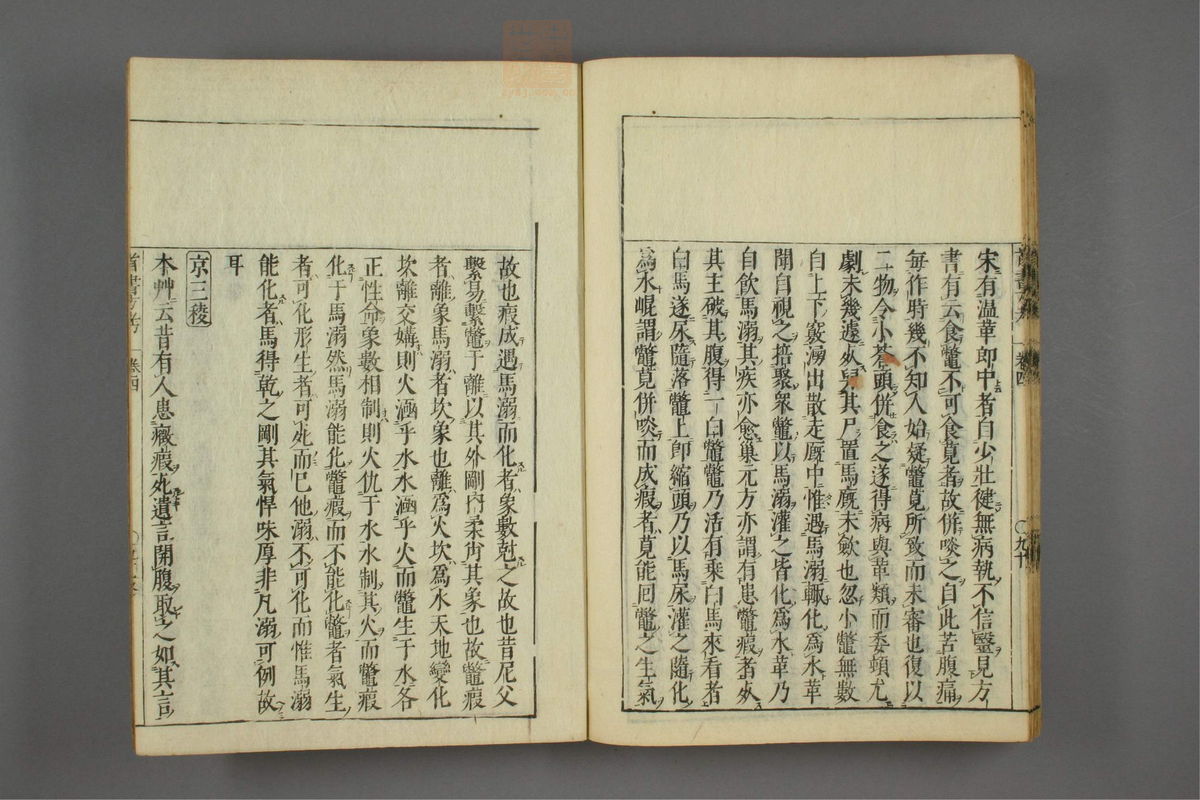 宋有温革郎中者自少壯徤無病執不信毉見方
書有云食鼈不可食莧者故併啖之自此苦腹痛
毎作時幾不知人始疑鼈莧所致而未審也復以
二物令小蒼頭併食之遂得病與革類而委頓尤
劇未幾遽死舁其尸置馬厩未歛也忽小鼈無數
自上下竅湧出散走厩中惟遇馬溺輙化為水革
聞自視之掊聚衆鼈以馬溺灌之皆化為水革乃
自飲馬溺其疾亦愈巢元方亦謂有患鼈瘕者死
其主破其腹得一白鼈鼈乃活有乘白馬來看者
白馬遂尿隨落鼈上即縮頭乃以馬尿灌之隨化
為水崐謂鼈莧併啖而成瘕者莧能回鼈之生氣
故也瘕成遇馬溺而化者象數尅之故也昔尼父
繫易繫鼈于離以其外剛內柔肖其象也故鼈瘕
者離象馬溺者坎象也離為火坎為水天地變化
坎離交媾則火涵乎水水涵乎火而鼈生于水各
正性命象數相制則火仇于水水制其火而鼈瘕
化于馬溺然馬溺能化鼈瘕而不能化鼈者氣生
者可化形生者可死而已他溺不可化而惟馬溺
能化者馬得乾之剛其氣悍味厚非凡溺可例故
耳
京三稜
本艸云昔有人患癥瘕死遺言開腹取之如其言
卷四
卷四